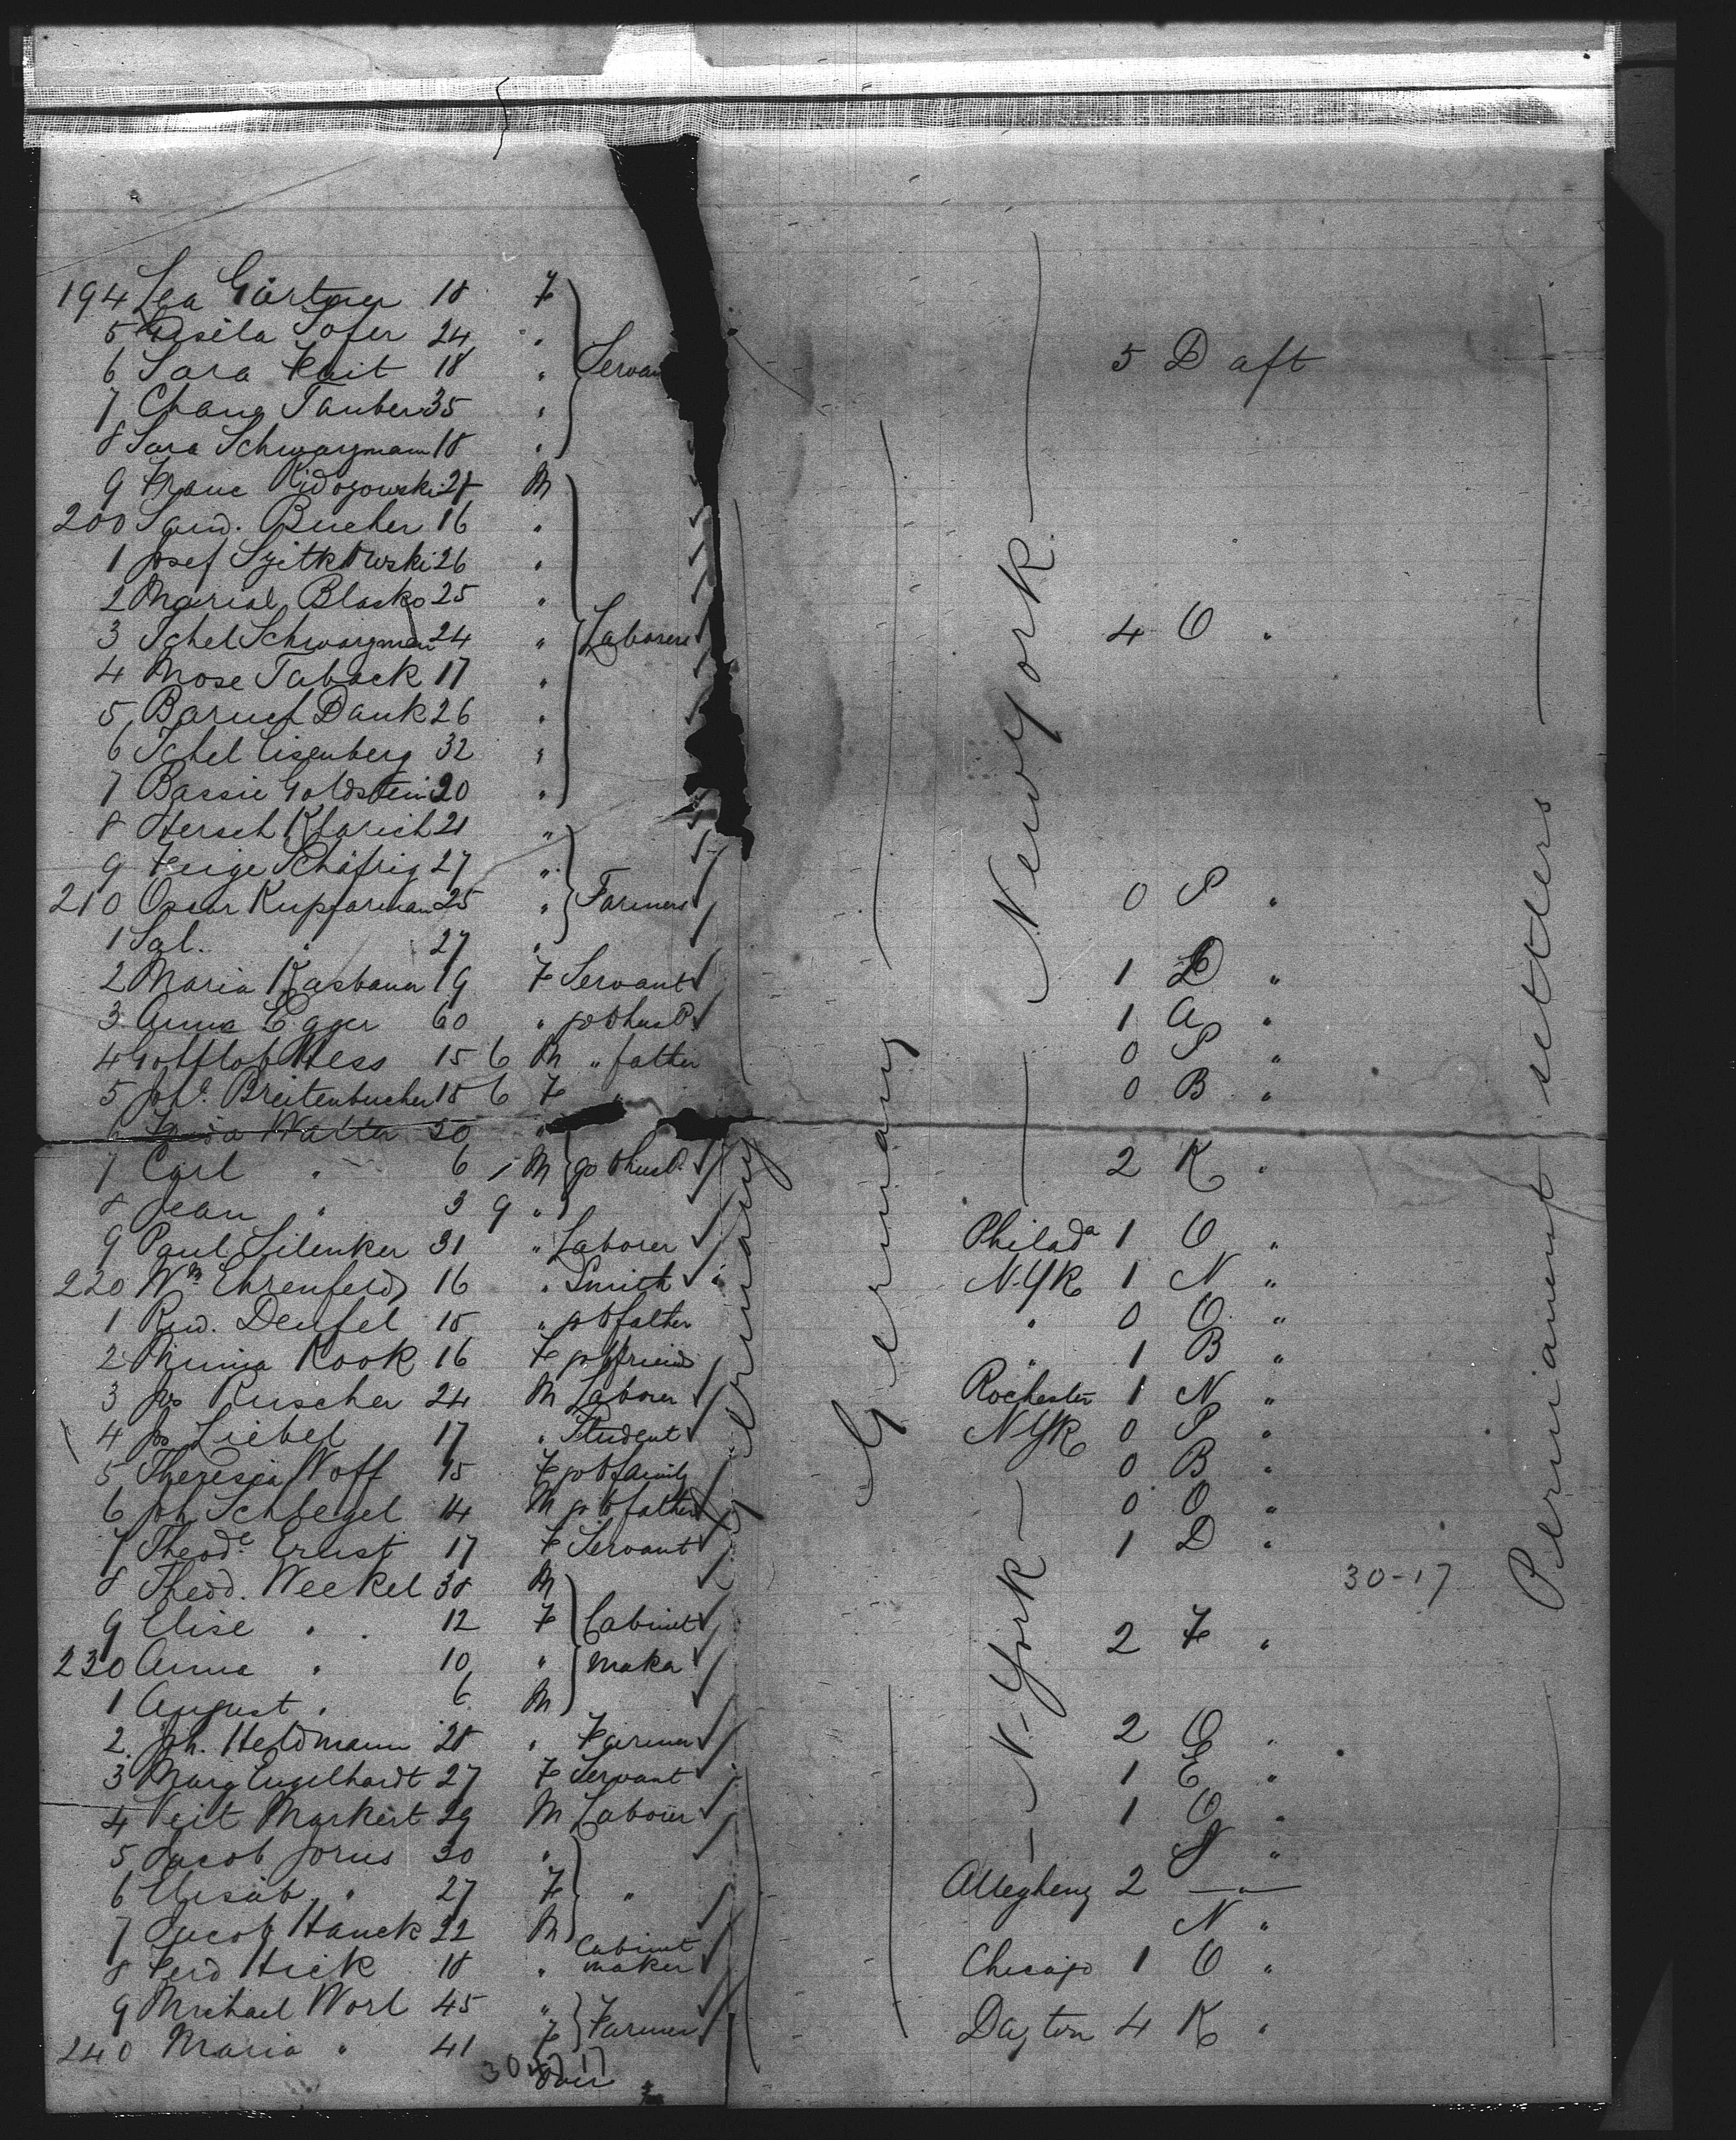 194 Lea Gärtner 18 F
5 Gisela Sofer 24 "
6 Sara 18 " Servan 5 D aft
7 Chane Tauber 35 "
8 Sara Schwarzmann 18 "
9 Franc 28 M
200 Bucher 16 "
1 Josef Szitkowski 26 "
2 Blasko 25 "
3 Ichel Schwarzman 24 " Laborers 4 O "
4 Mose Taback 17 "
5 Baruch Dank 26 "
6 Ichel Eisenberg 32 "
7 Bassie Goldstein 20 "
8 Hersch 21 "
9 Feige Schäfrig 27 "
210 Oscar Kupferman 25 " Farmers 0 P "
1 Sal. " 27 "
2 Maria 19 F Servant 1 D "
3 Anna Egger 60 " go t husb. 1 A "
4 Gottlob Hess 15 6 M " father 0 P "
5 Joh.e Breitenbucher 18 6 F " 0 B "
6 Walter 30 "
7 Carl " 6 M go t husb. 2 K "
8 Jean " 3 9 "
9 Paul Silenker 31 " Laborer Philada 1 O "
220 Wm Ehrenfeld 16 " Smith N.Yk 1 N "
1 Deufel 15 " go t father " 0 O "
2 Minna Kook 16 F go t friend " 1 B "
3 Jos Ruscher 24 M Laborer Rochester 1 N "
4 Jos Liebel 17 " Student N Yk 0 P "
5 Theresia Woff 15 F go t family 0 B "
6 Joh Schlegel 14 M go t father 0 O "
7 Theode Ernst 17 F Servant 1 D "
8 Theod. Weekel 38 M 30-17
9 Elise " 12 F Cabinet 2 F "
230 Anna " 10 " maker
1 August " 6 M
2 Joh. Heldmann 28 " Farmer 2 O "
3 Marg Engelhardt 27 F Servant 1 E "
4 Veit Markert 29 M Laborer 1 O "
5 Jacob Jorus 30 "
6 Elisab. " 27 F " Allegheny 2
7 Jacob Hauck 22 M N "
8 Ferd Hick 18 " Cabinet maker Chicago 1 O "
9 Michael Worl 45 " Farmer Dayton 4 K "
240 Maria " 41 F
Germany
Germany
New York
N. York
Permanent settlers